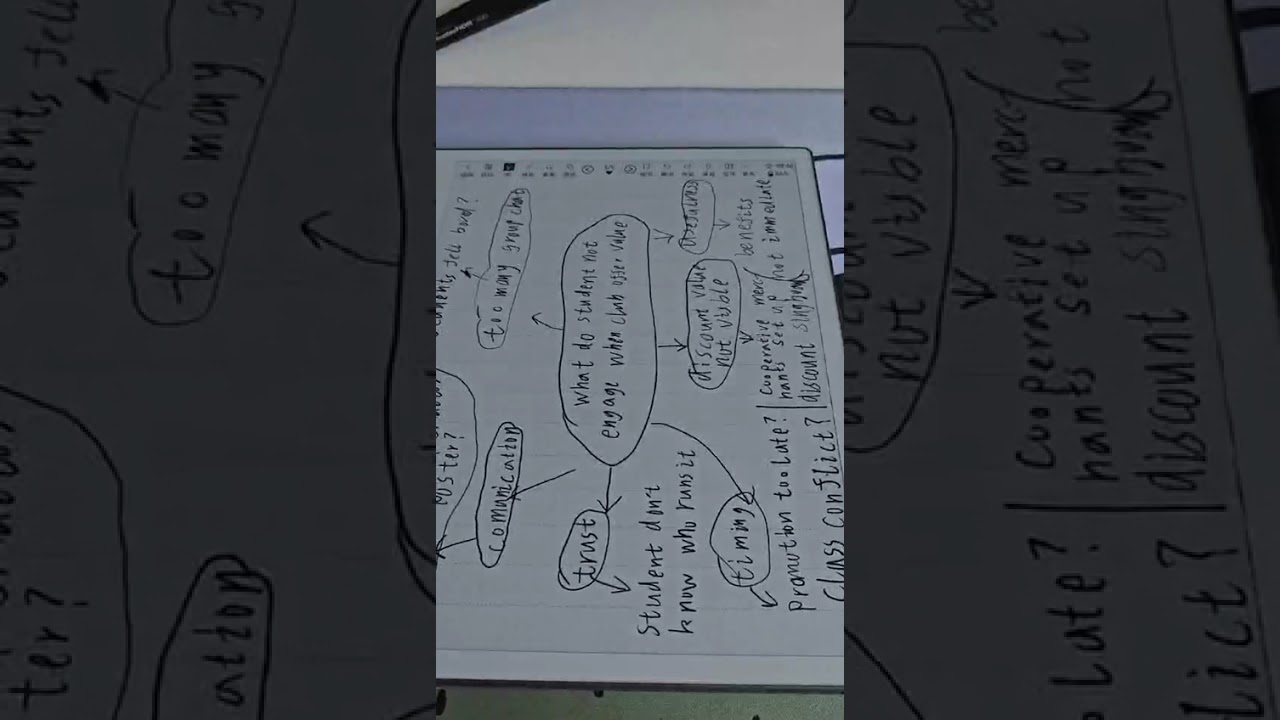 students tell
tell bout?
too many group chat
poster?
comunication
What do student not
engage when club offer value
trust
Student don't
know who runs it
timing
promotion too late?
class conflict?
discount value
not visible
cooperative merc
hants set up
discount
benefits
not immediate